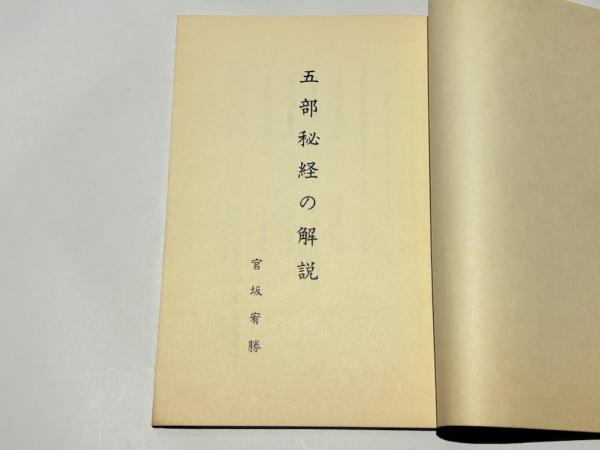 五部秘経の解説
宮坂宥勝